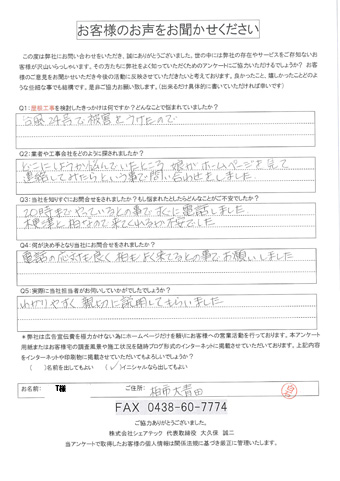 お客様のお声をお聞かせください
この度は弊社にお問い合わせをいただき、誠にありがとうございました。世の中には弊社の存在やサービスをご存知ないお
客様が沢山いらっしゃいます。その方たちに弊社をよく知っていただくためのアンケートにご協力いただけるでしょうか？お客
様のご意見をお聞かせいただき今後の活動に反映させていただきたいと考えております。良かったこと、嬉しかったことどのよ
うな些細な事でも結構です。是非ご協力お願い致します。（出来るだけ具体的に書いていただければ幸いです）
Q1：屋根工事を検討したきっかけは何ですか？どんなことで悩まれていましたか？
台風24号で被害をうけたので
Q2：業者や工事会社をどのように探されましたか？
どこにしようか悩んでいたところ 娘がホームページを見て
連絡してみたらという事で問い合わせをしました
Q3：当社を知りすぐにお問合せをされましたか？もし悩まれたとしたらどんなことがご不安でしたか？
20時までやっているとの事で すぐに電話しました
木更津と柏なので来てくれるか不安でした
Q4：何が決め手となり当社にお問合せをされましたか？
電話の応対も良く 柏もよく来てるとの事でお願いしました
Q5：実際に当社担当者がお伺いしていかがでしたでしょうか？
わかりやすく 親切に説明してもらいました
＊弊社は広告宣伝費を極力かけない為にホームページだけを頼りにお客様への営業活動を行っております。本アンケート
用紙またはお客様宅の調査風景や施工状況を随時ブログ形式のインターネットに掲載させていただいております。上記内容
をインターネットや印刷物に掲載させていただいてもよろしいでしょうか？
（ ）名前を出してもよい （✓）イニシャルなら出してもよい
お名前： T様 ご住所： 柏市大青田
FAX 0438-60-7774
ご協力ありがとうございました。
株式会社シェアテック 代表取締役 大久保 誠二
当アンケートで取得したお客様の個人情報は関係法規に基づき厳正に管理いたします。